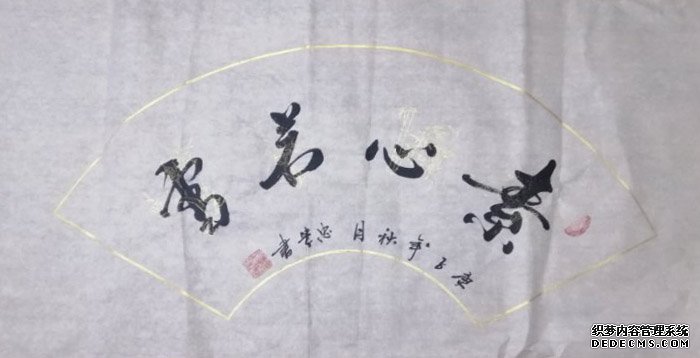 素心若雪
庚子年秋月忠贵書
织梦内容管理系统
DEDECMS.COM